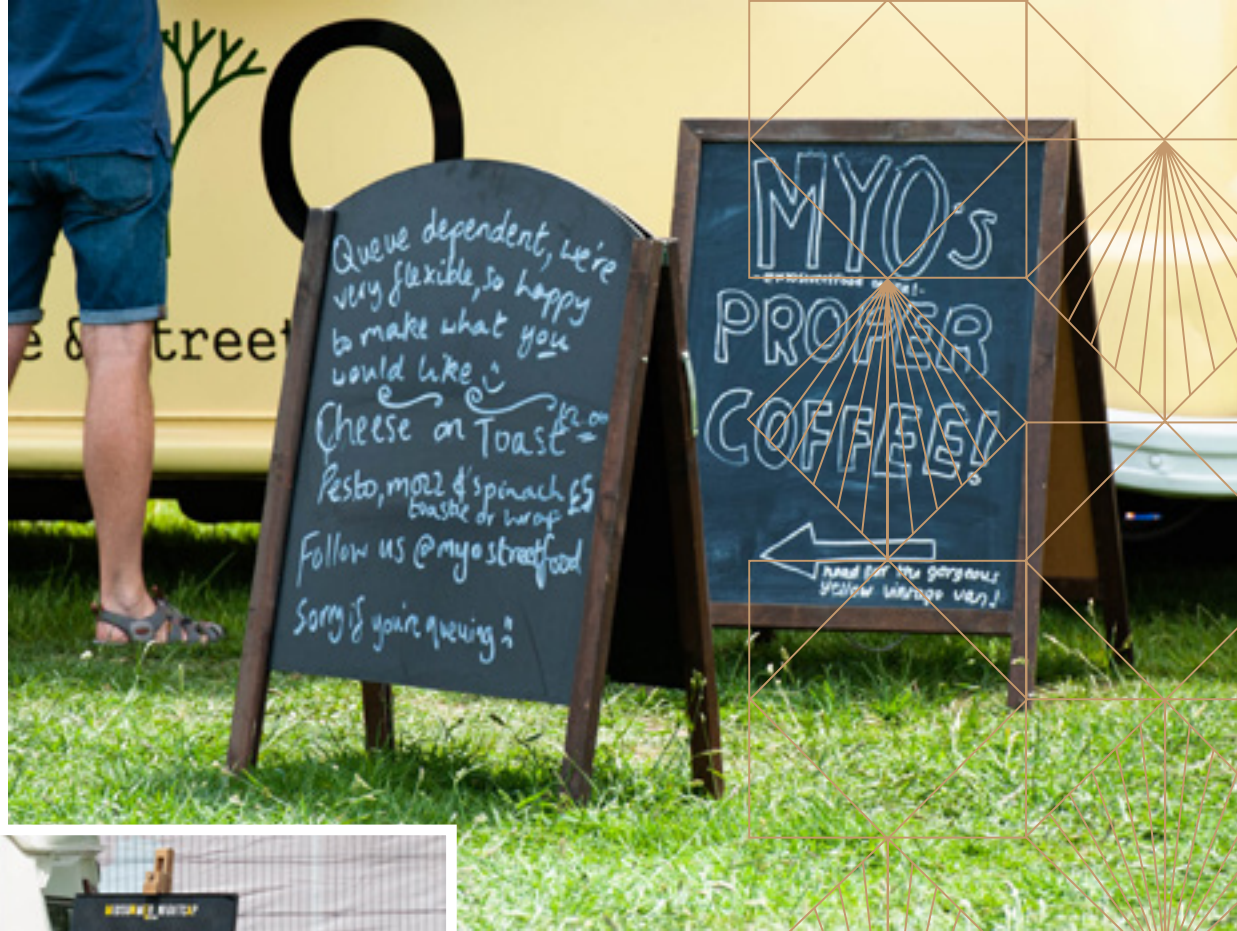 e & Street
Queue dependent, we're
very flexible, so happy
to make what you
would like :)
Cheese on Toast £2.00
Pesto, mozz & spinach £5
toastie or wrap
Follow us @myostreetfood
Sorry if you're queuing :)
MYO's
PROPER
COFFEE!
head for the gorgeous
yellow vintage van!